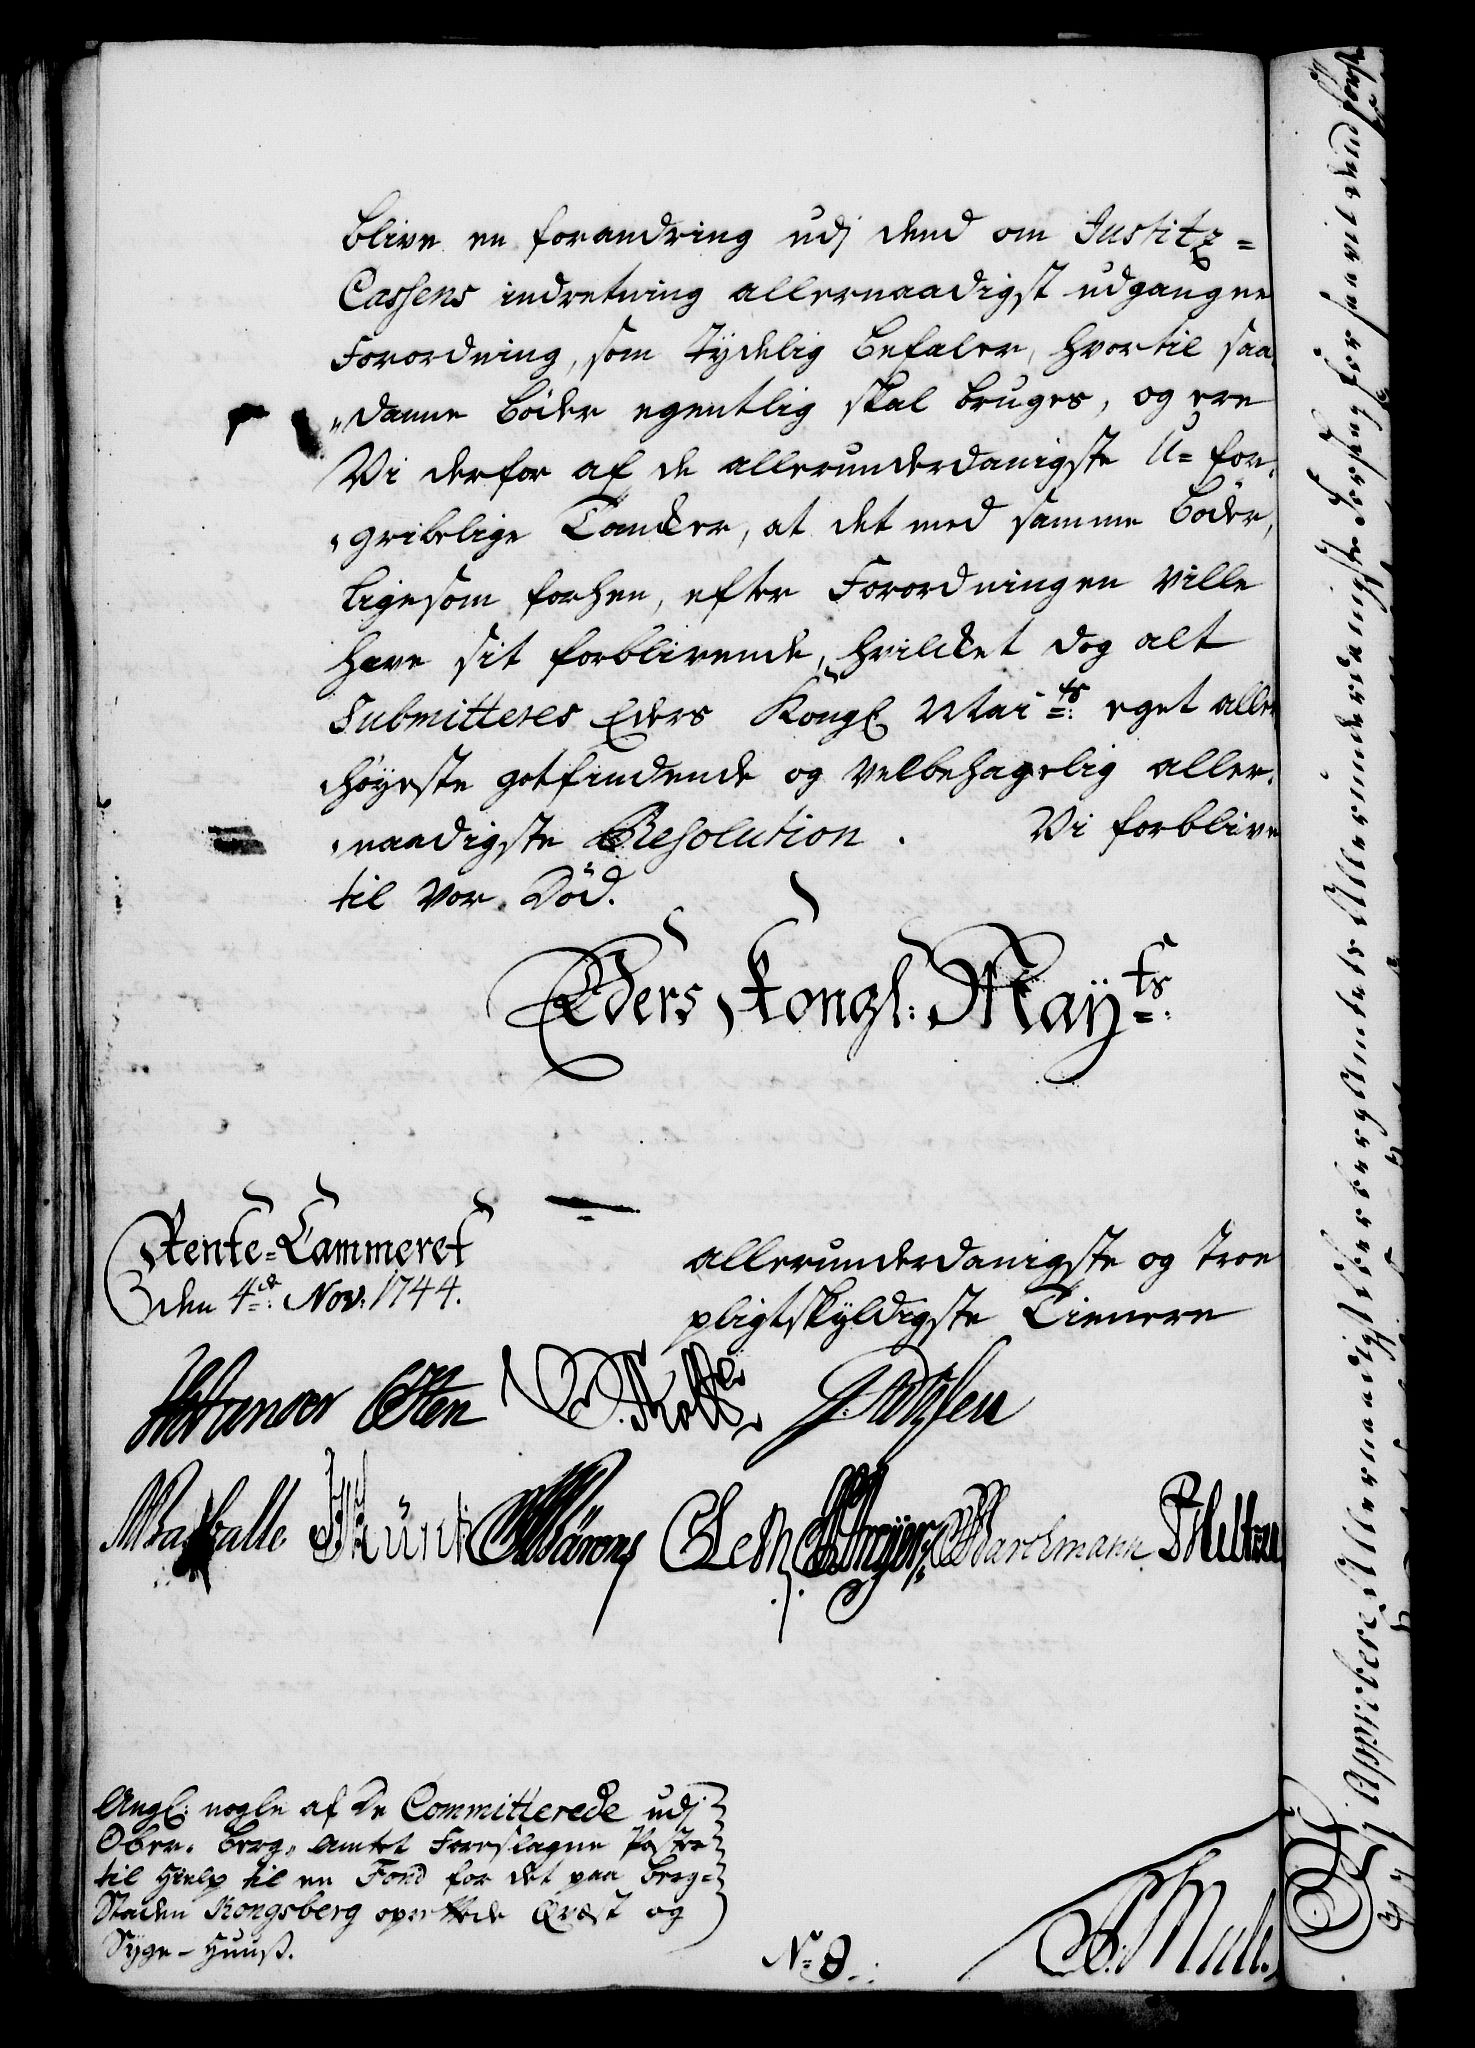 blive en forandring udj dend om Justitz=
Cassens indretning allernaadigst udgangne
Forordning, som tydelig befaler, hvortil saa
danne bøder egentlig skal bruges, og ere
Vi derfor af de allerunderdanigste U=for-
gribelige Tancker, at det med samme bøder,
ligesom forhen, efter Forordningen ville
have sit forblivende, hvilcket dog alt
Submitteres Eders Kongl Mai ts: eget aller
høyeste gotfindende og velbehagelig aller-
naadigste Resolution. Vi forblive
til vor Død.
Eders Kongl: May ts:
Rente=Cammeret
den 4de: Nov: 1744.
allerunderdanigste og troe
pligtskyldigste Tienere
Angl: nogle af De Committerede udj
Ober-berg-Amtet Foreslagne Poster
til Hielp til en Fond for det paa berg=
Staden Kongsberg oprettede Qvæst og
Syge-Huuß.
No 8.
Approbere Allernaadigst Ober berg Amtets Allerunderdanigste Forslag for saavit dend